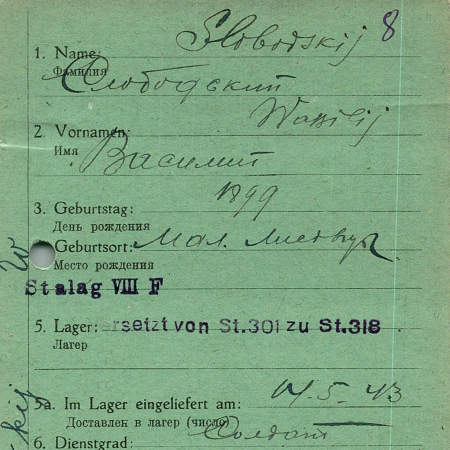 Slobodskij 8
1. Name:
Фамилия
Слободский
Wassilij
2. Vornamen:
Имя
Василий
1899
3. Geburtstag:
День рождения
Geburtsort: Мал.
Место рождения
Stalag VIII F
5. Lager: ersetzt von St.301 zu St.318
Лагер
5a. Im Lager eingeliefert am: 14.5.43
Доставлен в лагер (число)
Солдат
6. Dienstgrad: